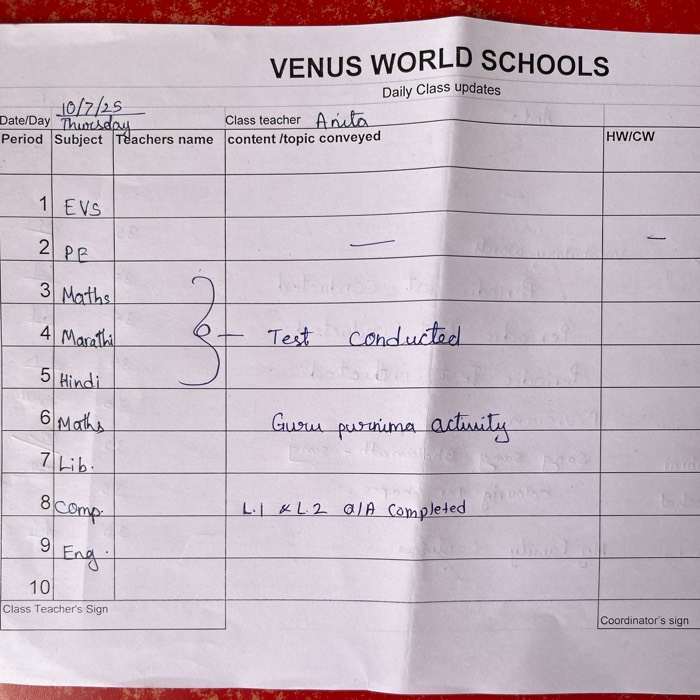 VENUS WORLD SCHOOLS
Daily Class updates
Date/Day 10/7/25 Thursday Class teacher Anita
Period Subject Teachers name content /topic conveyed HW/CW
1 EVS
2 PE — —
3 Maths
4 Marathi } — Test conducted
5 Hindi
6 Maths Guru purnima activity
7 Lib.
8 Comp. L.1 & L.2 Q/A Completed
9 Eng.
10
Class Teacher's Sign Coordinator's sign